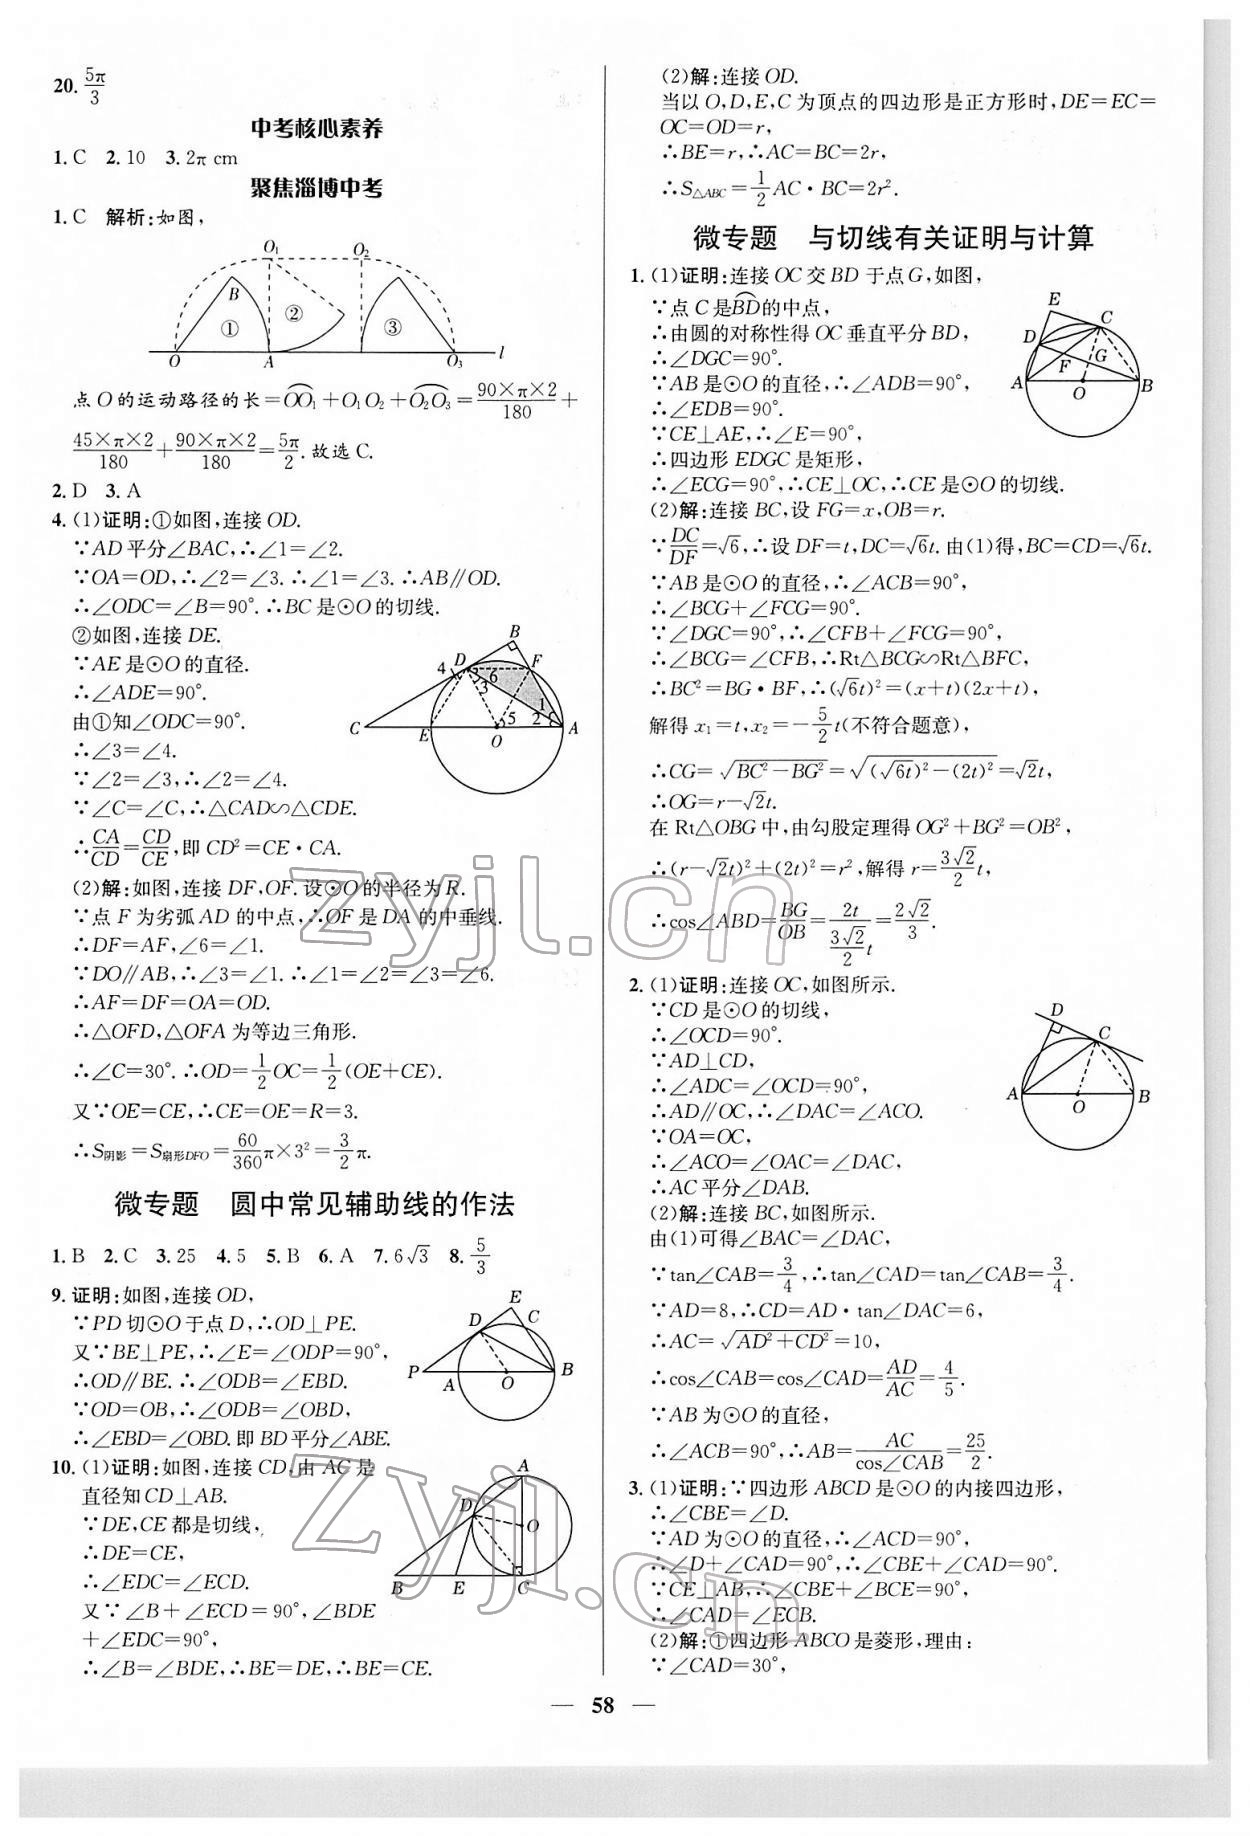 20. 5π/3
中考核心素养
1. C 2. 10 3. 2π cm
聚焦淄博中考
1. C 解析:如图,
O₁ O₂
B ① ② ③
O A O₃ l
点 O 的运动路径的长=⌒OO₁+O₁O₂+⌒O₂O₃=90×π×2/180+
45×π×2/180+90×π×2/180=5π/2.故选 C.
2. D 3. A
4. (1)证明:①如图,连接 OD.
∵AD 平分∠BAC,∴∠1=∠2.
∵OA=OD,∴∠2=∠3.∴∠1=∠3.∴AB∥OD.
∴∠ODC=∠B=90°.∴BC 是⊙O 的切线.
②如图,连接 DE.
∵AE 是⊙O 的直径.
∴∠ADE=90°.
由①知∠ODC=90°.
∴∠3=∠4.
∵∠2=∠3,∴∠2=∠4.
∵∠C=∠C,∴△CAD∽△CDE.
∴CA/CD=CD/CE,即 CD²=CE·CA.
B
4 D F
6 3
1
5 2
C E O A
(2)解:如图,连接 DF,OF.设⊙O 的半径为 R.
∵点 F 为劣弧 AD 的中点,∴OF 是 DA 的中垂线.
∴DF=AF,∠6=∠1.
∵DO∥AB,∴∠3=∠1.∴∠1=∠2=∠3=∠6.
∴AF=DF=OA=OD.
∴△OFD,△OFA 为等边三角形.
∴∠C=30°.∴OD=1/2OC=1/2(OE+CE).
又∵OE=CE,∴CE=OE=R=3.
∴S阴影=S扇形DFO=60/360π×3²=3/2π.
微专题 圆中常见辅助线的作法
1. B 2. C 3. 25 4. 5 5. B 6. A 7. 6√3 8. 5/3
9. 证明:如图,连接 OD,
∵PD 切⊙O 于点 D,∴OD⊥PE.
又∵BE⊥PE,∴∠E=∠ODP=90°,
∴OD∥BE.∴∠ODB=∠EBD.
∵OD=OB,∴∠ODB=∠OBD,
∴∠EBD=∠OBD.即 BD 平分∠ABE.
E
D C
P A O B
10. (1)证明:如图,连接 CD,由 AC 是
直径知 CD⊥AB.
∵DE,CE 都是切线,
∴DE=CE,
∴∠EDC=∠ECD.
又∵∠B+∠ECD=90°,∠BDE
+∠EDC=90°,
∴∠B=∠BDE,∴BE=DE,∴BE=CE.
A
D
O
B E C
(2)解:连接 OD.
当以 O,D,E,C 为顶点的四边形是正方形时,DE=EC=
OC=OD=r,
∴BE=r,∴AC=BC=2r,
∴S△ABC=1/2AC·BC=2r².
微专题 与切线有关证明与计算
1. (1)证明:连接 OC 交 BD 于点 G,如图,
∵点 C 是⌒BD的中点,
∴由圆的对称性得 OC 垂直平分 BD,
∴∠DGC=90°.
∵AB 是⊙O 的直径,∴∠ADB=90°,
∴∠EDB=90°.
∵CE⊥AE,∴∠E=90°,
∴四边形 EDGC 是矩形,
∴∠ECG=90°,∴CE⊥OC,∴CE 是⊙O 的切线.
E
C
D
F G
A O B
(2)解:连接 BC,设 FG=x,OB=r.
∵DC/DF=√6,∴设 DF=t,DC=√6t.由(1)得,BC=CD=√6t.
∵AB 是⊙O 的直径,∴∠ACB=90°,
∴∠BCG+∠FCG=90°.
∵∠DGC=90°,∴∠CFB+∠FCG=90°,
∴∠BCG=∠CFB,∴Rt△BCG∽Rt△BFC,
∴BC²=BG·BF,∴(√6t)²=(x+t)(2x+t),
解得 x₁=t,x₂=-5/2t(不符合题意),
∴CG=√(BC²-BG²)=√((√6t)²-(2t)²)=√2t,
∴OG=r-√2t.
在 Rt△OBG 中,由勾股定理得 OG²+BG²=OB²,
∴(r-√2t)²+(2t)²=r²,解得 r=3√2/2t,
∴cos∠ABD=BG/OB=2t/(3√2/2t)=2√2/3.
2. (1)证明:连接 OC,如图所示.
∵CD 是⊙O 的切线,
∴∠OCD=90°.
∵AD⊥CD,
∴∠ADC=∠OCD=90°,
∴AD∥OC,∴∠DAC=∠ACO.
∵OA=OC,
∴∠ACO=∠OAC=∠DAC,
∴AC 平分∠DAB.
D
C
A O B
(2)解:连接 BC,如图所示.
由(1)可得∠BAC=∠DAC,
∵tan∠CAB=3/4,∴tan∠CAD=tan∠CAB=3/4.
∵AD=8,∴CD=AD·tan∠DAC=6,
∴AC=√(AD²+CD²)=10,
∴cos∠CAB=cos∠CAD=AD/AC=4/5.
∵AB 为⊙O 的直径,
∴∠ACB=90°,∴AB=AC/cos∠CAB=25/2.
3. (1)证明:∵四边形 ABCD 是⊙O 的内接四边形,
∴∠CBE=∠D.
∵AD 为⊙O 的直径,∴∠ACD=90°,
∴∠D+∠CAD=90°,∴∠CBE+∠CAD=90°.
∵CE⊥AB,∴∠CBE+∠BCE=90°,
∴∠CAD=∠ECB.
(2)解:①四边形 ABCO 是菱形,理由:
∵∠CAD=30°,
— 58 —
zyjl.cn
zyjl.cn